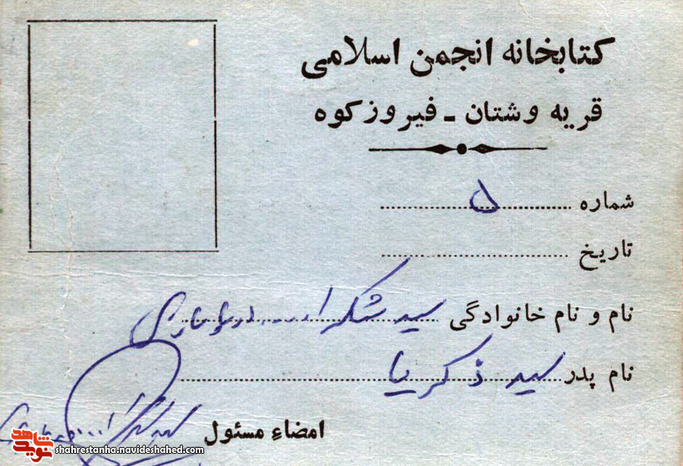 کتابخانه انجمن اسلامی
قریه وشتان - فیروزکوه
شماره ۵
تاریخ
نام و نام خانوادگی سید شکراله
نام پدر سید ذکریا
امضاء مسئول
شاهد
نوید
shahrestanha.navideshahed.com